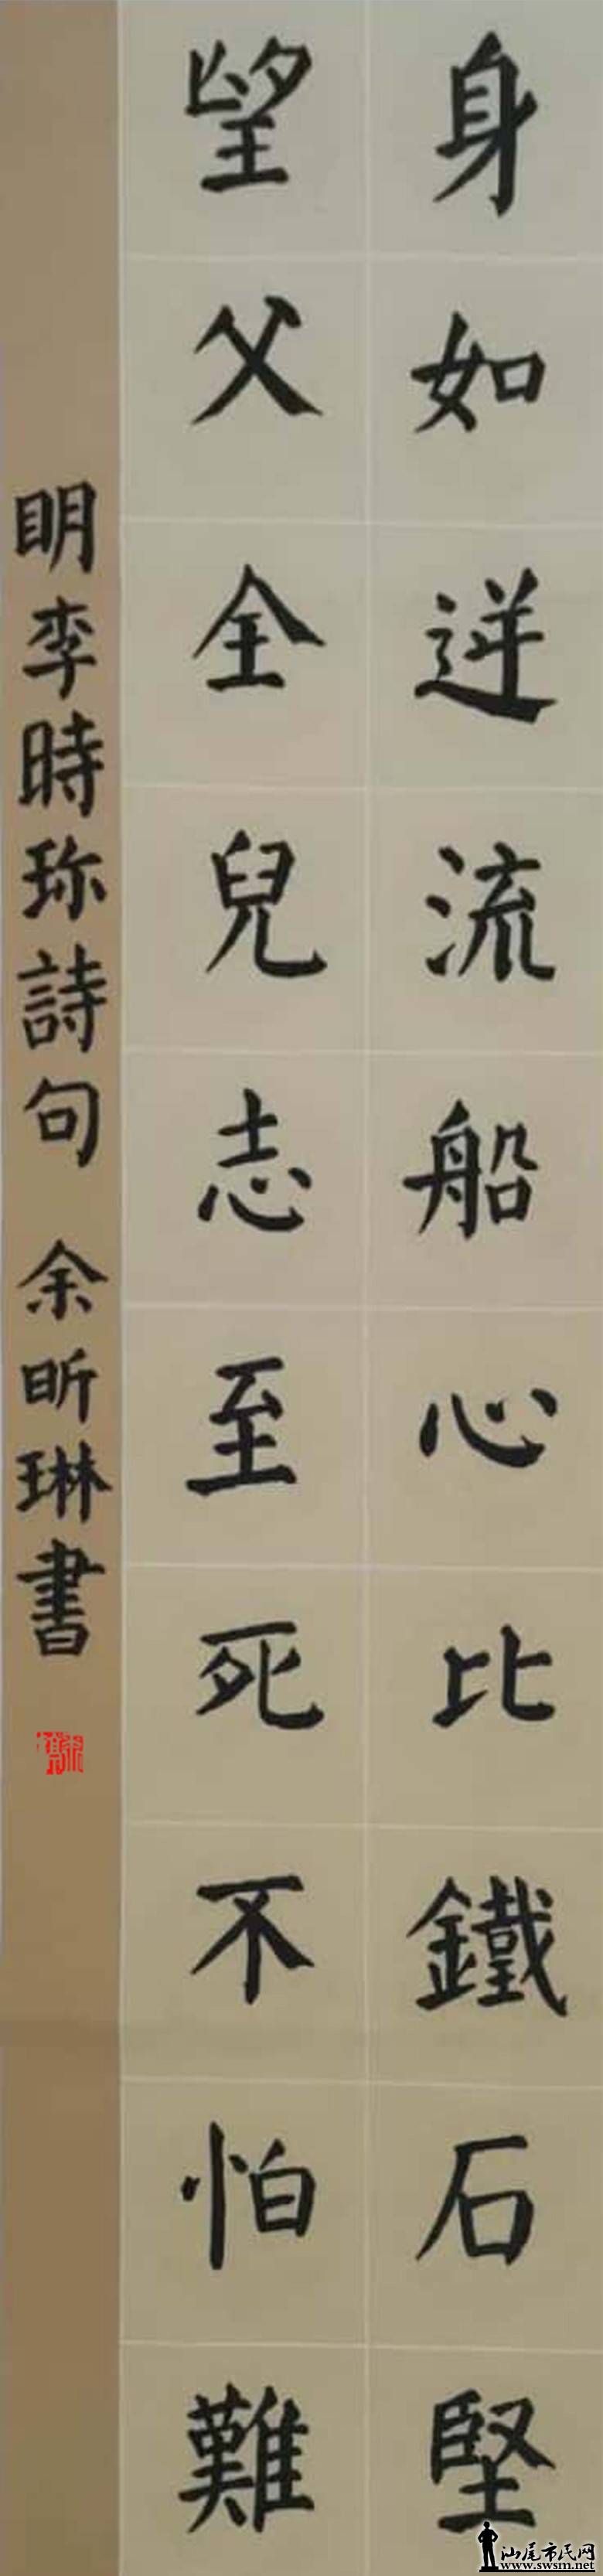 身如逆流船心比鐵石堅
望父全兒志至死不怕難
明李時珍詩句 余昕琳書
汕尾市民网
www.swsm.net